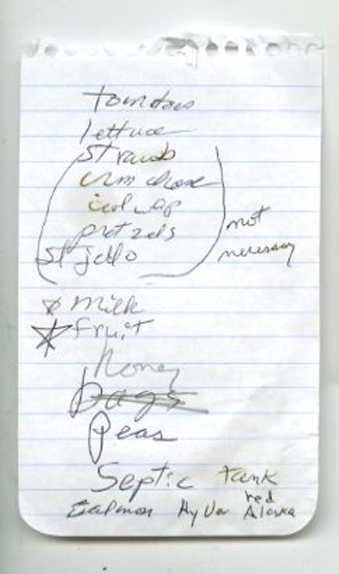 tomatoes
lettuce
strawb
crm cheese
cool wap
pretzels
st jello
not
necessary
Milk
fruit
honey
bags
Peas
Septic tank
red
Alaska